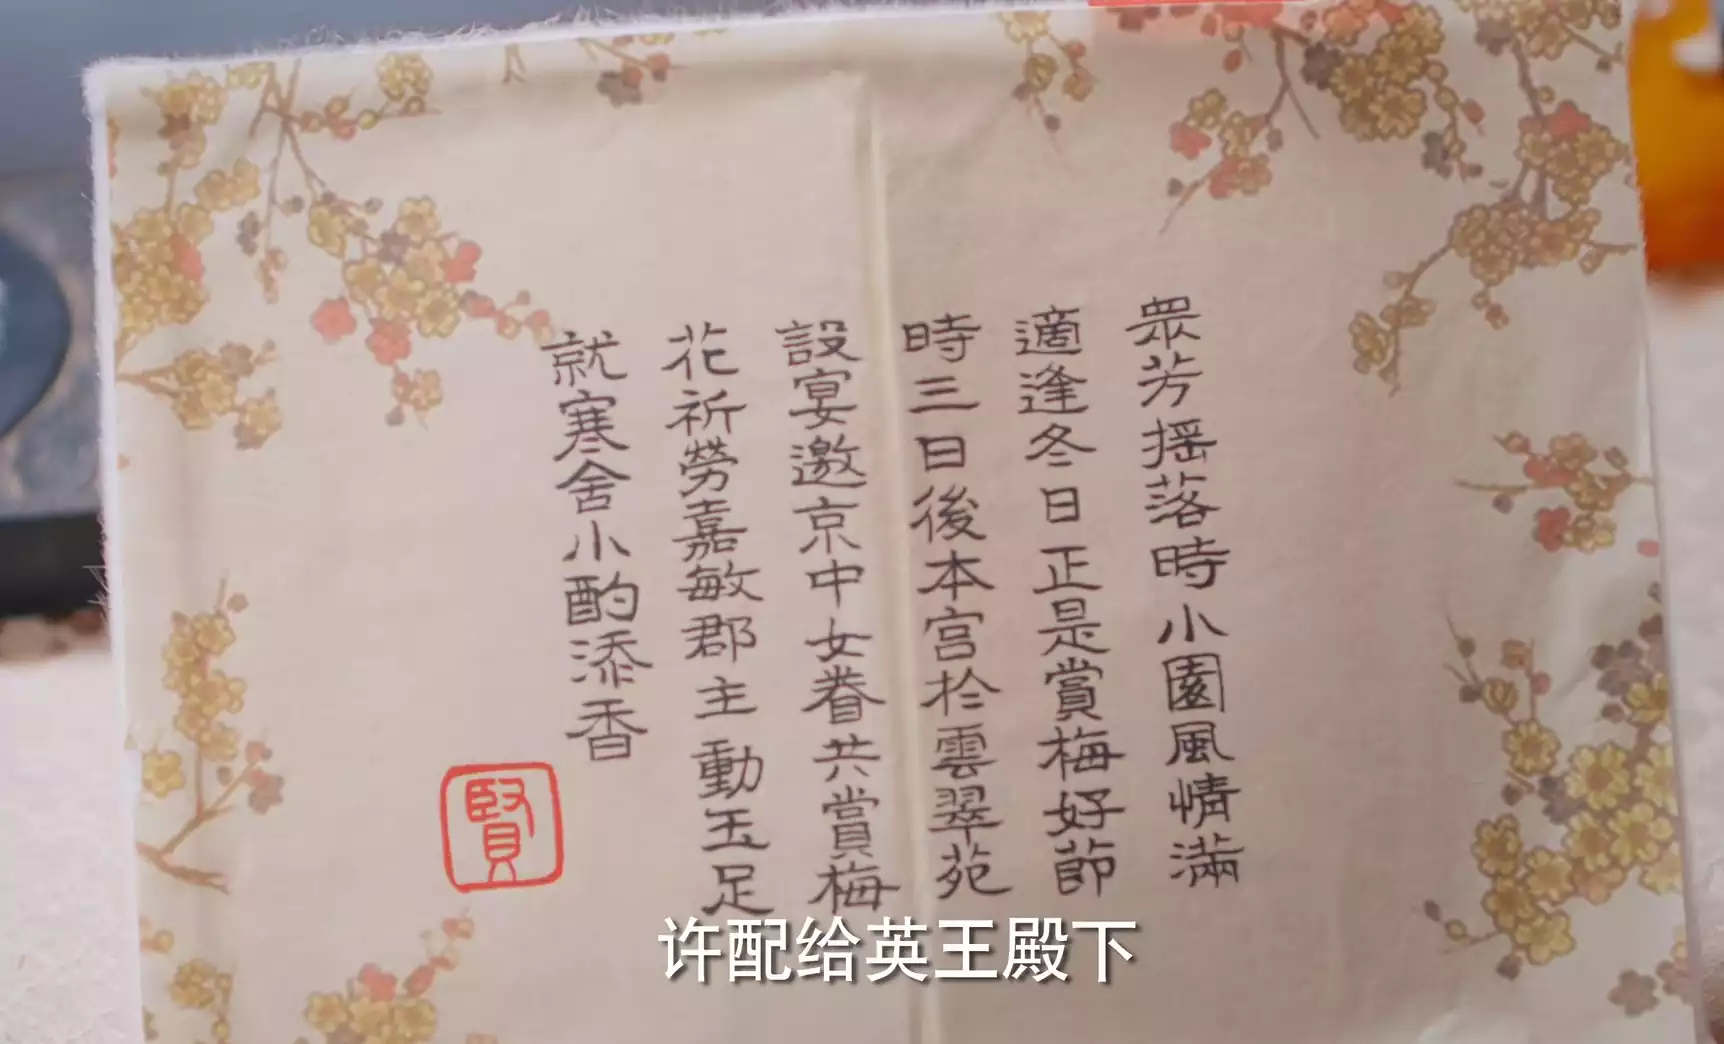 眾芳摇落時小園風情滿
適逢冬日正是賞梅好節
時三日後本宫於雲翠苑
設宴邀京中女眷共賞梅
花祈勞嘉敏郡主動玉足
就寒舍小酌添香
賢
许配给英王殿下